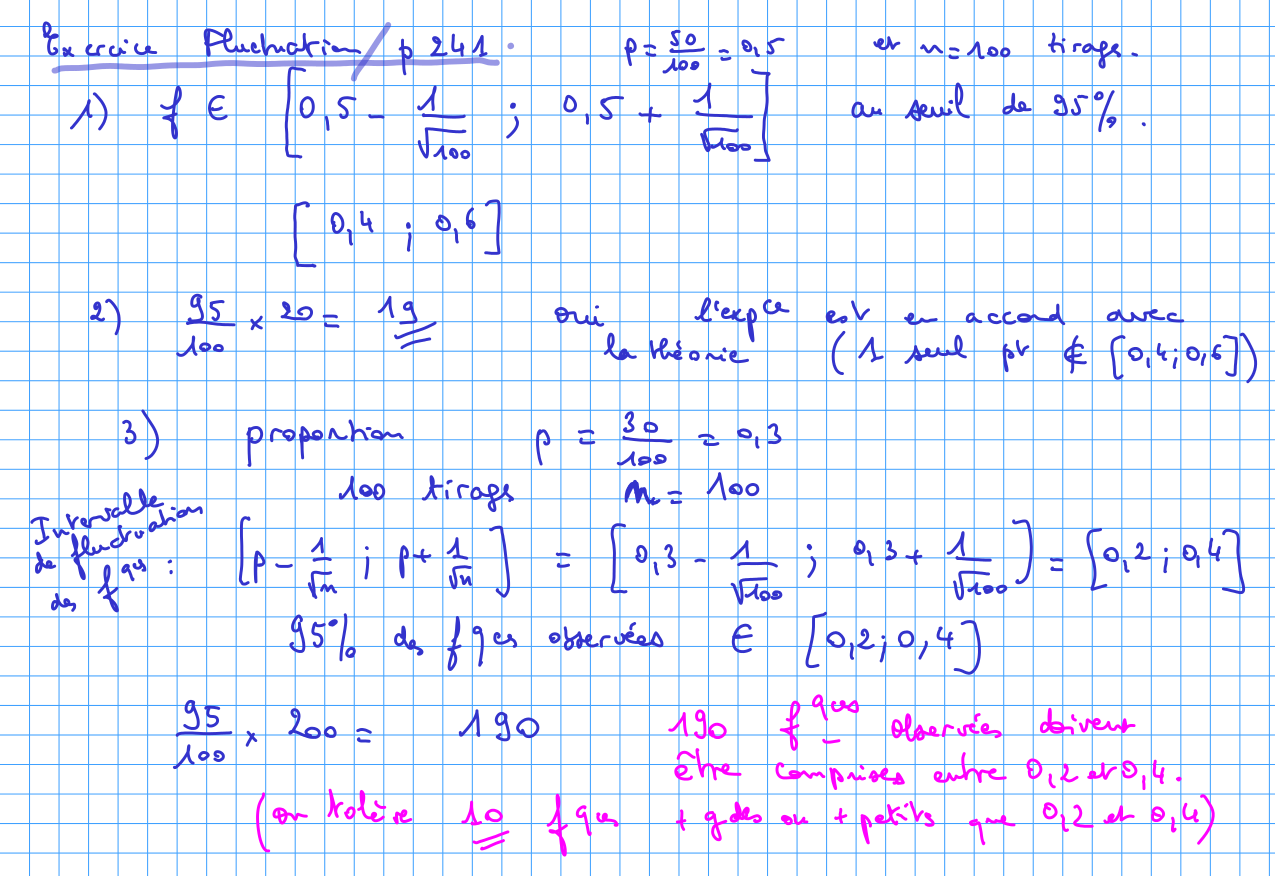 Exercice Fluctuation / p 241. p = 50/100 = 0,5 et n = 100 tirags.
1) f ∈ [0,5 - 1/√100 ; 0,5 + 1/√100] au seuil de 95%.
[0,4 ; 0,6]
2) 95/100 × 20 = 19 oui l'expce est en accord avec
la théorie (1 seul pt ∉ [0,4 ; 0,6])
3) proportion p = 30/100 = 0,3
100 tirags n = 100
Intervalle de fluctuation des fqces : [p - 1/√n ; p + 1/√n] = [0,3 - 1/√100 ; 0,3 + 1/√100] = [0,2 ; 0,4]
95% des fqces observées ∈ [0,2 ; 0,4]
95/100 × 200 = 190 190 fqces observées doivent
être comprises entre 0,2 et 0,4.
(on tolère 10 fqces + gdes ou + petits que 0,2 et 0,4)